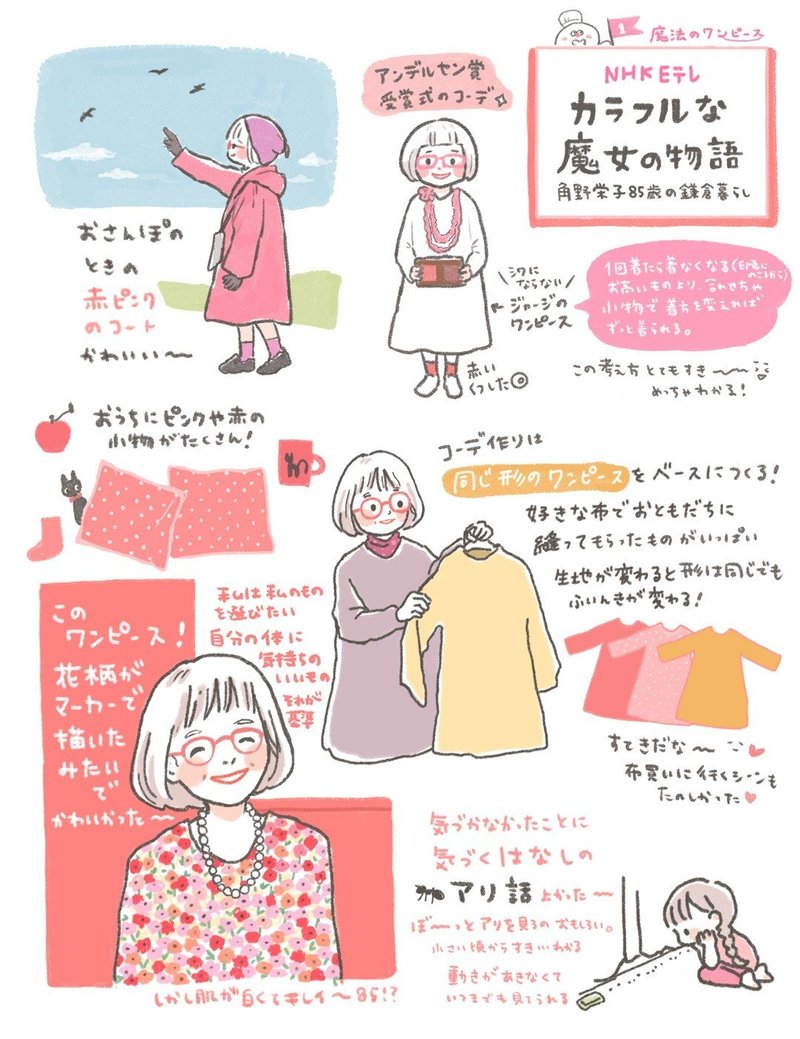 1
魔法のワンピース
NHK Eテレ
カラフルな
魔女の物語
角野栄子85歳の鎌倉暮らし
アンデルセン賞
受賞式のコーデ
おさんぽの
ときの
赤ピンク
のコート
かわいい〜
シワに
ならない
ジャージの
ワンピース
赤い
くつした◎
1回着たら着なくなる(印象に
のこるから)
お高いものより、合わせや
小物で着方を変えれば
ずっと着られる。
この考え方とてもすき〜
めっちゃわかる!
おうちにピンクや赤の
小物がたくさん!
コーデ作りは
同じ形のワンピースをベースにつくる!
好きな布でおともだちに
縫ってもらったものがいっぱい
生地が変わると形は同じでも
ふいんきが変わる!
すてきだな〜
布買いに行くシーンも
たのしかった
この
ワンピース!
花柄が
マーカーで
描いた
みたい
で
かわいかった〜
私は私のもの
を選びたい
自分の体に
気持ちの
いいもの
それが
基準
しかし肌が白くてキレイ〜85!?
気づかなかったことに
気づくはなしの
アリ話 よかった〜
ぼーっとアリを見るのおもしろい。
小さい頃からすきいわかる
動きがあきなくて
いつまでも見てられる